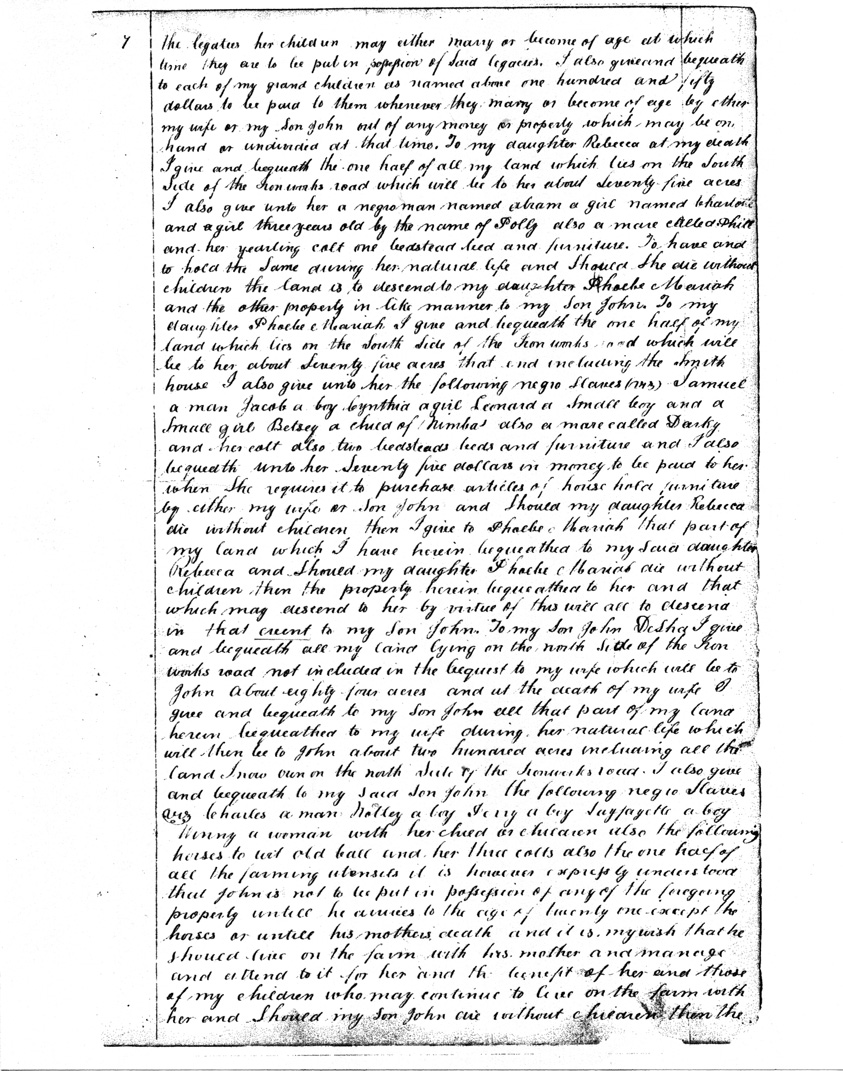 7
the legatees her children may either marry or become of age at which
time they are to be put in possession of said legacies. I also give and bequeath
to each of my grand children as named above one hundred and fifty
dollars to be paid to them whenever they marry or become of age by either
my wife or my Son John out of any money or property which may be on
hand or undivided at that time. To my daughter Rebecca at my death
I give and bequeath the one half of all my land which lies on the South
Side of the Iron works road which will be to her about Seventy five acres
I also give unto her a negro man named abram a girl named
and a girl three years old by the name of Polly also a mare called
and her yearling colt one bedstead bed and furniture. To have and
to hold the Same during her natural life and Should She die without
children the land is to descend to my daughter Phoebe Mariah
and the other property in like manner to my Son John. To my
daughter Phoebe Mariah I give and bequeath the one half of my
land which lies on the South Side of the Iron works road which will
be to her about Seventy five acres that end including the Smith
house I also give unto her the following negro Slaves (viz) Samuel
a man Jacob a boy Cynthia a girl Leonard a Small boy and a
Small girl Betsey a child of also a mare called Darky
and her colt also two bedsteads beds and furniture and I also
bequeath unto her Seventy five dollars in money to be paid to her
when She requires it to purchase articles of house hold furniture
by either my wife or Son John and Should my daughter Rebecca
die without children then I give to Phoebe Mariah that part of
my land which I have herein bequeathed to my Said daughter
Rebecca and Should my daughter Phoebe Mariah die without
children then the property herein bequeathed to her and that
which may descend to her by virtue of this will all to descend
in that event to my Son John. To my Son John DeSha I give
and bequeath all my land lying on the north Side of the Iron
works road not included in the bequest to my wife which will be to
John about eighty four acres and at the death of my wife I
give and bequeath to my Son John all that part of my land
herein bequeathed to my wife during her natural life which
will then be to John about two hundred acres including all the
land I now own on the north Side of the Ironworks road. I also give
and bequeath to my Said Son John the following negro Slaves
viz Charles a man Notley a boy Jerry a boy Layfayette a boy
Winny a woman with her child or children also the following
horses to wit old ball and her three colts also the one half of
all the farming utensils it is however expressly understood
that John is not to be put in possession of any of the foregoing
property untill he arrives to the age of twenty one except the
horses or untill his mothers death and it is my wish that he
should live on the farm with his mother and manage
and attend to it for her and the benefit of her and those
of my children who may continue to live on the farm with
her and Should my Son John die without children then the